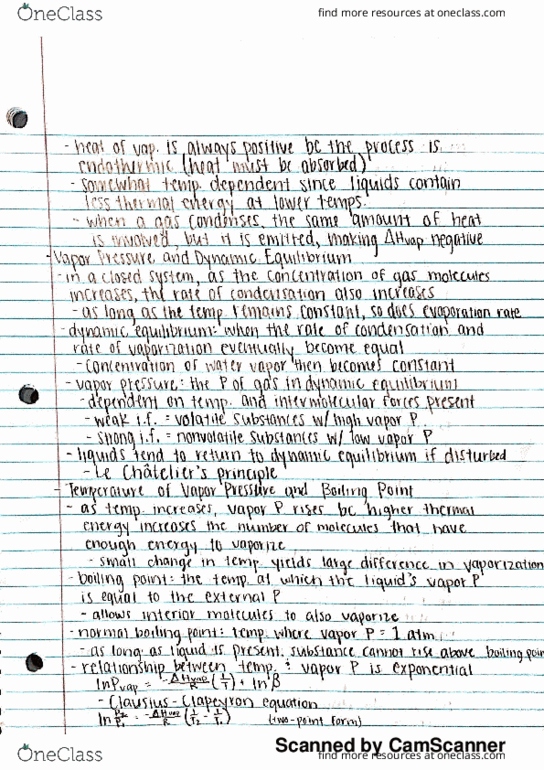 OneClass
find more resources at oneclass.com
- heat of vap. is always positive bc the process is
endothermic (heat must be absorbed)
- somewhat temp. dependent since liquids contain
less thermal energy at lower temps.
- when a gas condenses, the same amount of heat
is involved, but it is emitted, making ΔHvap negative
- Vapor Pressure and Dynamic Equilibrium
- in a closed system, as the concentration of gas molecules
increases, the rate of condensation also increases
- as long as the temp. remains constant, so does evaporation rate
- dynamic equilibrium: when the rate of condensation and
rate of vaporization eventually become equal
- concentration of water vapor then becomes constant
- vapor pressure: the P of gas in dynamic equilibrium
- dependent on temp. and intermolecular forces present
- weak i.f. = volatile substances w/ high vapor P
- strong i.f. = nonvolatile substances w/ low vapor P
- liquids tend to return to dynamic equilibrium if disturbed
- Le Châtelier's principle
- Temperature of Vapor Pressure and Boiling Point
- as temp. increases, vapor P rises bc higher thermal
energy increases the number of molecules that have
enough energy to vaporize
- small change in temp yields large difference in vaporization
- boiling point: the temp. at which the liquid's vapor P
is equal to the external P
- allows interior molecules to also vaporize
- normal boiling point: temp. where vapor P = 1 atm
- as long as liquid is present, substance cannot rise above boiling poin
- relationship between temp. & vapor P is exponential
ln Pvap = -ΔHvap/R (1/T) + ln β
- Clausius-Clapeyron equation
ln P2/P1 = -ΔHvap/R (1/T2 - 1/T1) (two-point form)
Scanned by CamScanner
OneClass
find more resources at oneclass.com